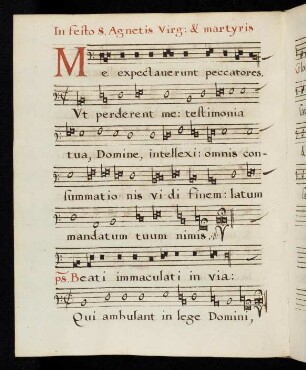 In festo S. Agnetis Virg: & martyris
Me expectauerunt peccatores,
Vt perderent me: testimonia
tua, Domine, intellexi: omnis con-
summatio nis vi di finem: latum
mandatum tuum nimis.
ps. Beati immaculati in via:
Qui ambulant in lege Domini,